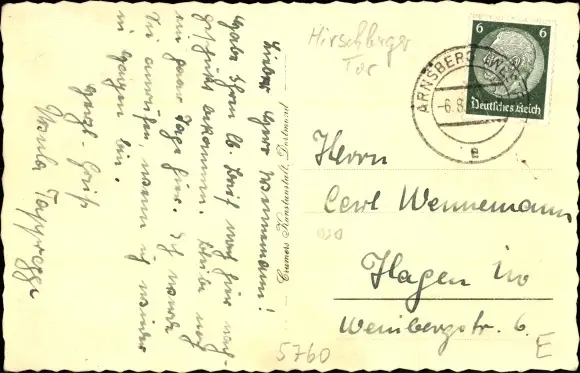 Lieber Herr Wennemann!
habe Ihren lb. Brief nach hier nach-
geschickt bekommen. Bleibe noch
ein paar Tage hier. Ich werde
Sie anrufen, wenn ich wieder
in Hagen bin.
Herzl. Gruß
Ursula Tapprogge
Cramers Kunstanstalt, Dortmund
Hirschberger
Tor
6 6
Deutsches Reich
ARNSBERG (WESTF
-6.8.
e
Herrn
Carl Wennemann
Hagen i/w
Weinbergstr. 6.
E
5760